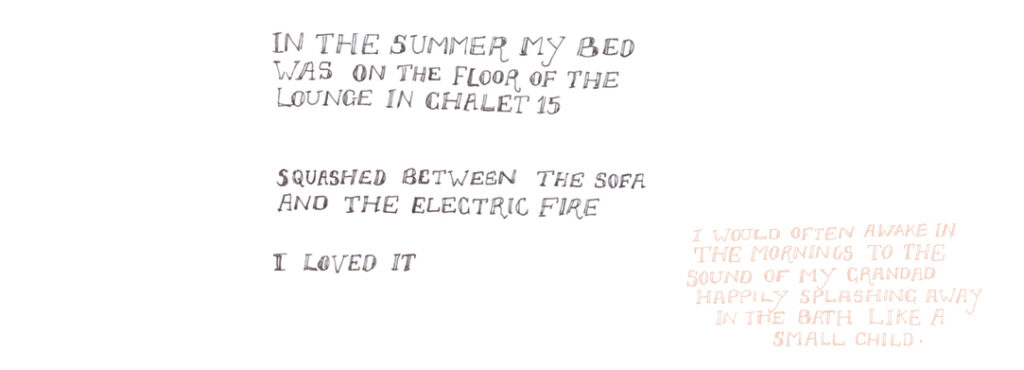 IN THE SUMMER MY BED
WAS ON THE FLOOR OF THE
LOUNGE IN CHALET 15
SQUASHED BETWEEN THE SOFA
AND THE ELECTRIC FIRE
I LOVED IT
I WOULD OFTEN AWAKE IN
THE MORNINGS TO THE
SOUND OF MY GRANDAD
HAPPILY SPLASHING AWAY
IN THE BATH LIKE A
SMALL CHILD.